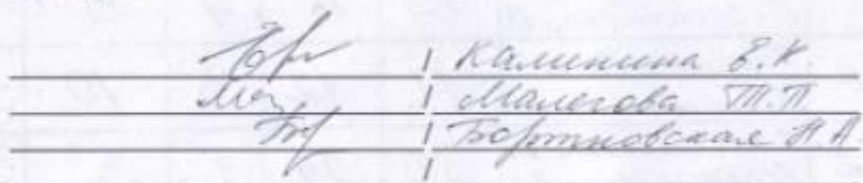 / Калинина Е.К.
/ Малегова Т.П.
/ Бортновская Н А
/